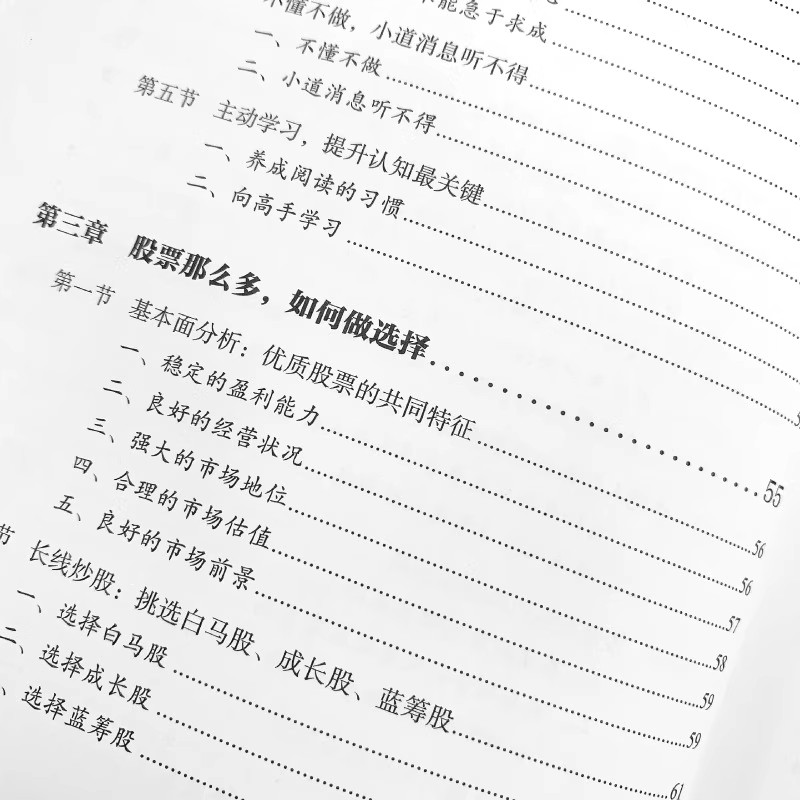 能急于求成
不懂不做，小道消息听不得
一、不懂不做
二、小道消息听不得
第五节 主动学习，提升认知最关键
一、养成阅读的习惯
二、向高手学习
第三章 股票那么多，如何做选择 55
第一节 基本面分析：优质股票的共同特征 56
一、稳定的盈利能力 56
二、良好的经营状况 57
三、强大的市场地位 58
四、合理的市场估值 59
五、良好的市场前景 59
节 长线炒股：挑选白马股、成长股、蓝筹股 61
一、选择白马股
二、选择成长股
、选择蓝筹股